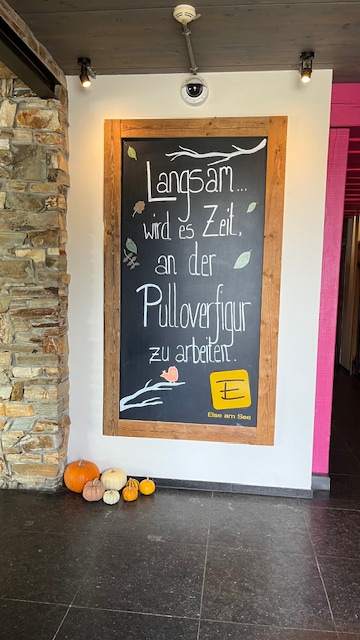 Langsam...
wird es Zeit,
an der
Pulloverfigur
zu arbeiten.
E
Else am See